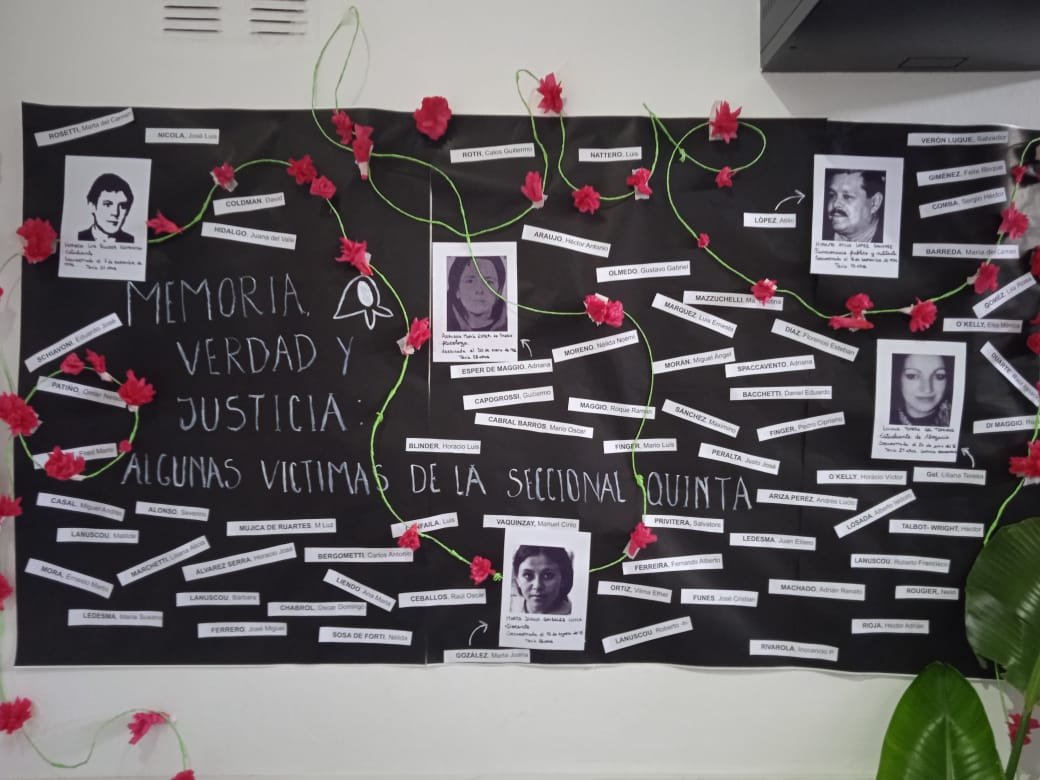 ROSETTI, Marta del Carmen
NICOLA, José Luis
ROTH, Calos Guillermo
NATTERO, Luis
VERÓN LUQUE, Salvador
GIMÉNEZ, Felix Roque
COMBA, Sergio Héctor
COLDMAN, David
LÓPEZ, Atilio
HIDALGO, Juana del Valle
ARAUJO, Héctor Antonio
BARREDA, María del Carmen
OLMEDO, Gustavo Gabriel
MEMORIA,
VERDAD Y
JUSTICIA:
ALGUNAS VICTIMAS DE LA SECCIONAL QUINTA
GOMEZ, Lila Rosa
MAZZUCHELLI, Ma.
MARQUEZ, Luis Ernesto
O´KELLY, Elsa Mónica
SCHIAVONI, Eduardo José
DÍAZ, Florencio Esteban
MORENO, Nélida Noemí
MORÁN, Miguel Angel
SPACCAVENTO, Adriana
ESPER DE MAGGIO, Adriana
DUARTE, Raúl
PATIÑO, Omar Nelson
CAPOGROSSI, Guillermo
BACCHETTI, Daniel Eduardo
MAGGIO, Roque Ramón
SÁNCHEZ, Maximino
CABRAL BARROS, Mario Oscar
FINGER, Pedro Cipriano
DI MAGGIO,
BLINDER, Horacio Luis
FINGER, Mario Luis
PERALTA, Justo José
O´KELLY, Horacio Víctor
Gel, Liliana Teresa
CASAL, Miguel Andrés
ALONSO, Severino
ARIZA PERÉZ, Andres Lucio
LOSADA, Alberto
MUJICA DE RUARTES, M Luz
Luis
VAQUINZAY, Manuel Cirilo
PRIVITERA, Salvatore
TALBOT- WRIGHT, Héctor
LANUSCOU, Matilde
LEDESMA, Juan Eliseo
MARCHETTI, Liliana Alicia
ALVAREZ SERRA, Horacio José
BERGOMETTI, Carlos Antonio
FERREIRA, Fernando Alberto
LANUSCOU, Roberto Francisco
MORA, Ernesto Mario
LIENDO, Ana María
MACHADO, Adrián Renato
ROUGIER, Nelo
LANUSCOU, Bárbara
CEBALLOS, Raúl Oscar
ORTIZ, Vilma Ethel
FUNES, José Cristian
LEDESMA, María Susana
CHABROL, Oscar Domingo
FERRERO, José Miguel
SOSA DE FORTI, Nélida
LANUSCOU, Roberto
RIOJA, Héctor Adrián
GOZÁLEZ, Marta Juana
RIVAROLA, Inocencio P.